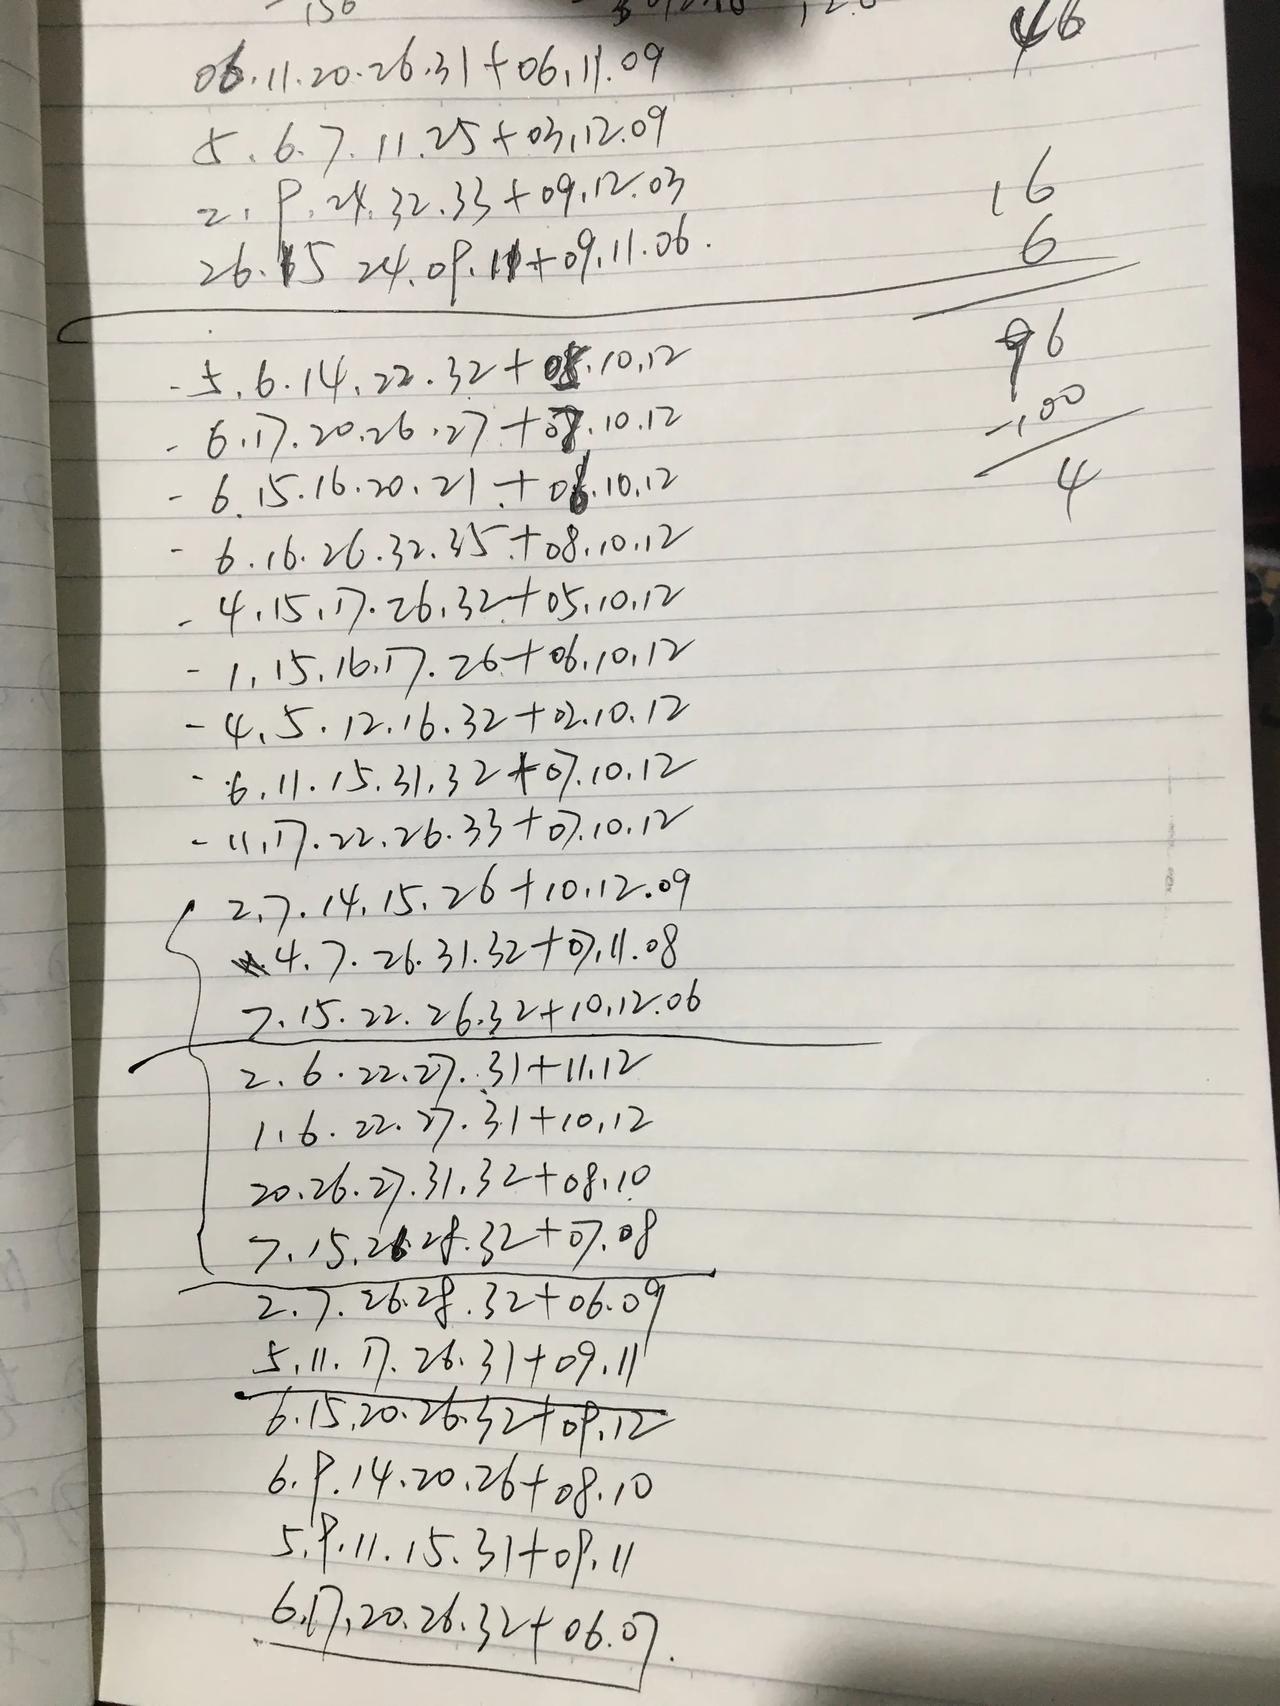 150
46
06.11.20.26.31+06.11.09
5.6.7.11.25+03.12.09
2.9.24.32.33+09.12.03
16
26.15 24.09.11+09.11.06.
6
96
-100
4
-5.6.14.22.32+08.10.12
-6.17.20.26.27+07.10.12
-6.15.16.20.21+06.10.12
-6.16.26.32.35+08.10.12
-4.15.17.26.32+05.10.12
-1.15.16.17.26+06.10.12
-4.5.12.16.32+02.10.12
-6.11.15.31.32+07.10.12
-11.17.22.26.33+07.10.12
2.7.14.15.26+10.12.09
4.7.26.31.32+07.11.08
7.15.22.26.32+10.12.06
2.6.22.27.31+11.12
1.6.22.27.31+10.12
20.26.27.31.32+08.10
7.15.26.28.32+07.08
2.7.26.28.32+06.09
5.11.17.26.31+09.11
6.15.20.26.32+09.12
6.9.14.20.26+08.10
5.9.11.15.31+09.11
6.17.20.26.32+06.07.